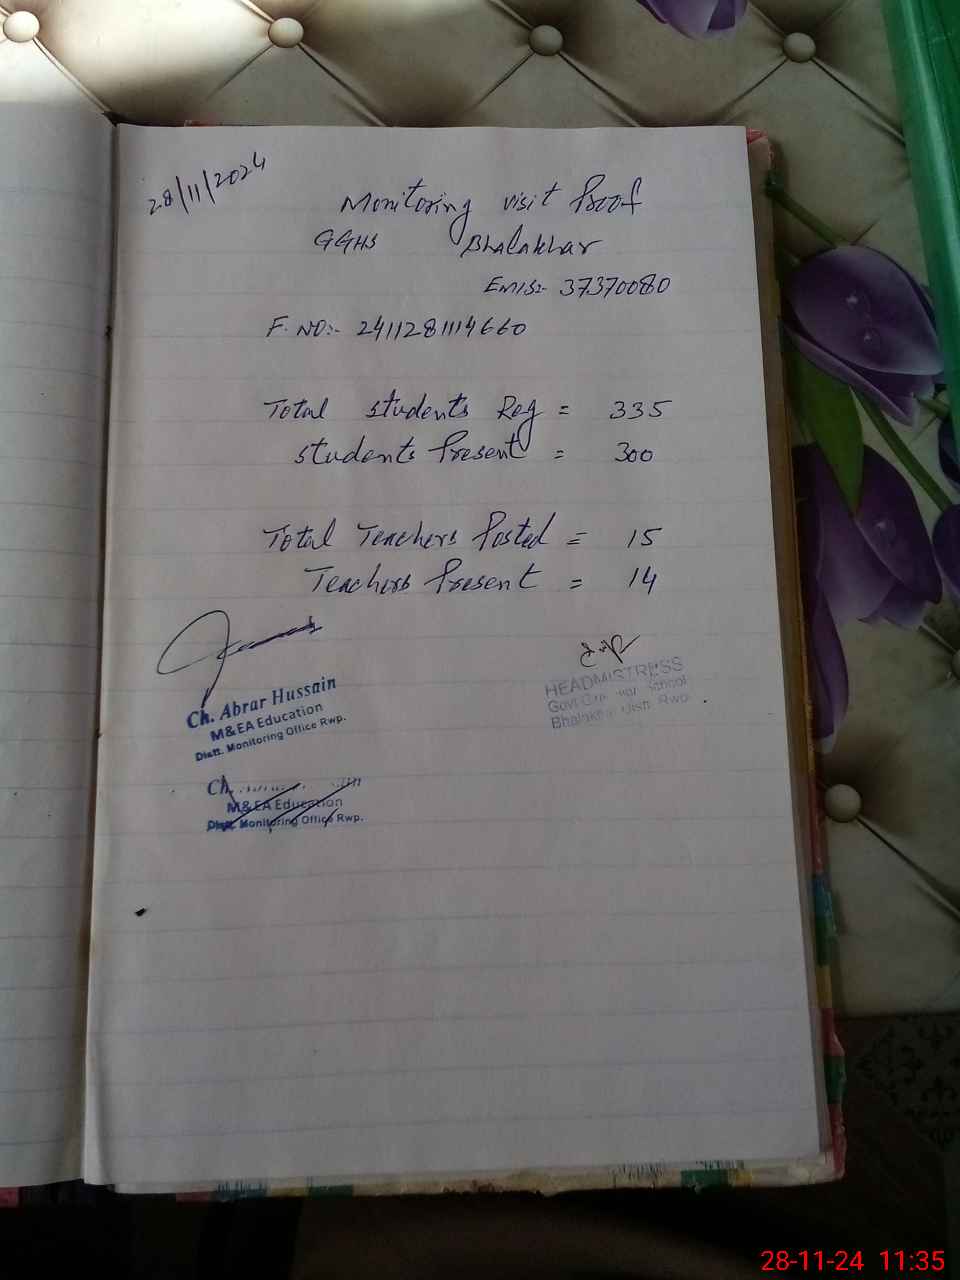 28/11/2024
Monitoring visit Proof
GGHS Bhalakhar
EMIS:- 37370080
F. NO:- 2411281114660
Total students Reg = 335
students Present = 300
Total Teachers Posted = 15
Teachers Present = 14
Ch. Abrar Hussain
M&EA Education
Distt. Monitoring Office Rwp.
HEADMISTRESS
Govt School
Bhalakhar Distt. Rwp.
Ch.
M&EA Education
Distt. Monitoring Office Rwp.
28-11-24 11:35